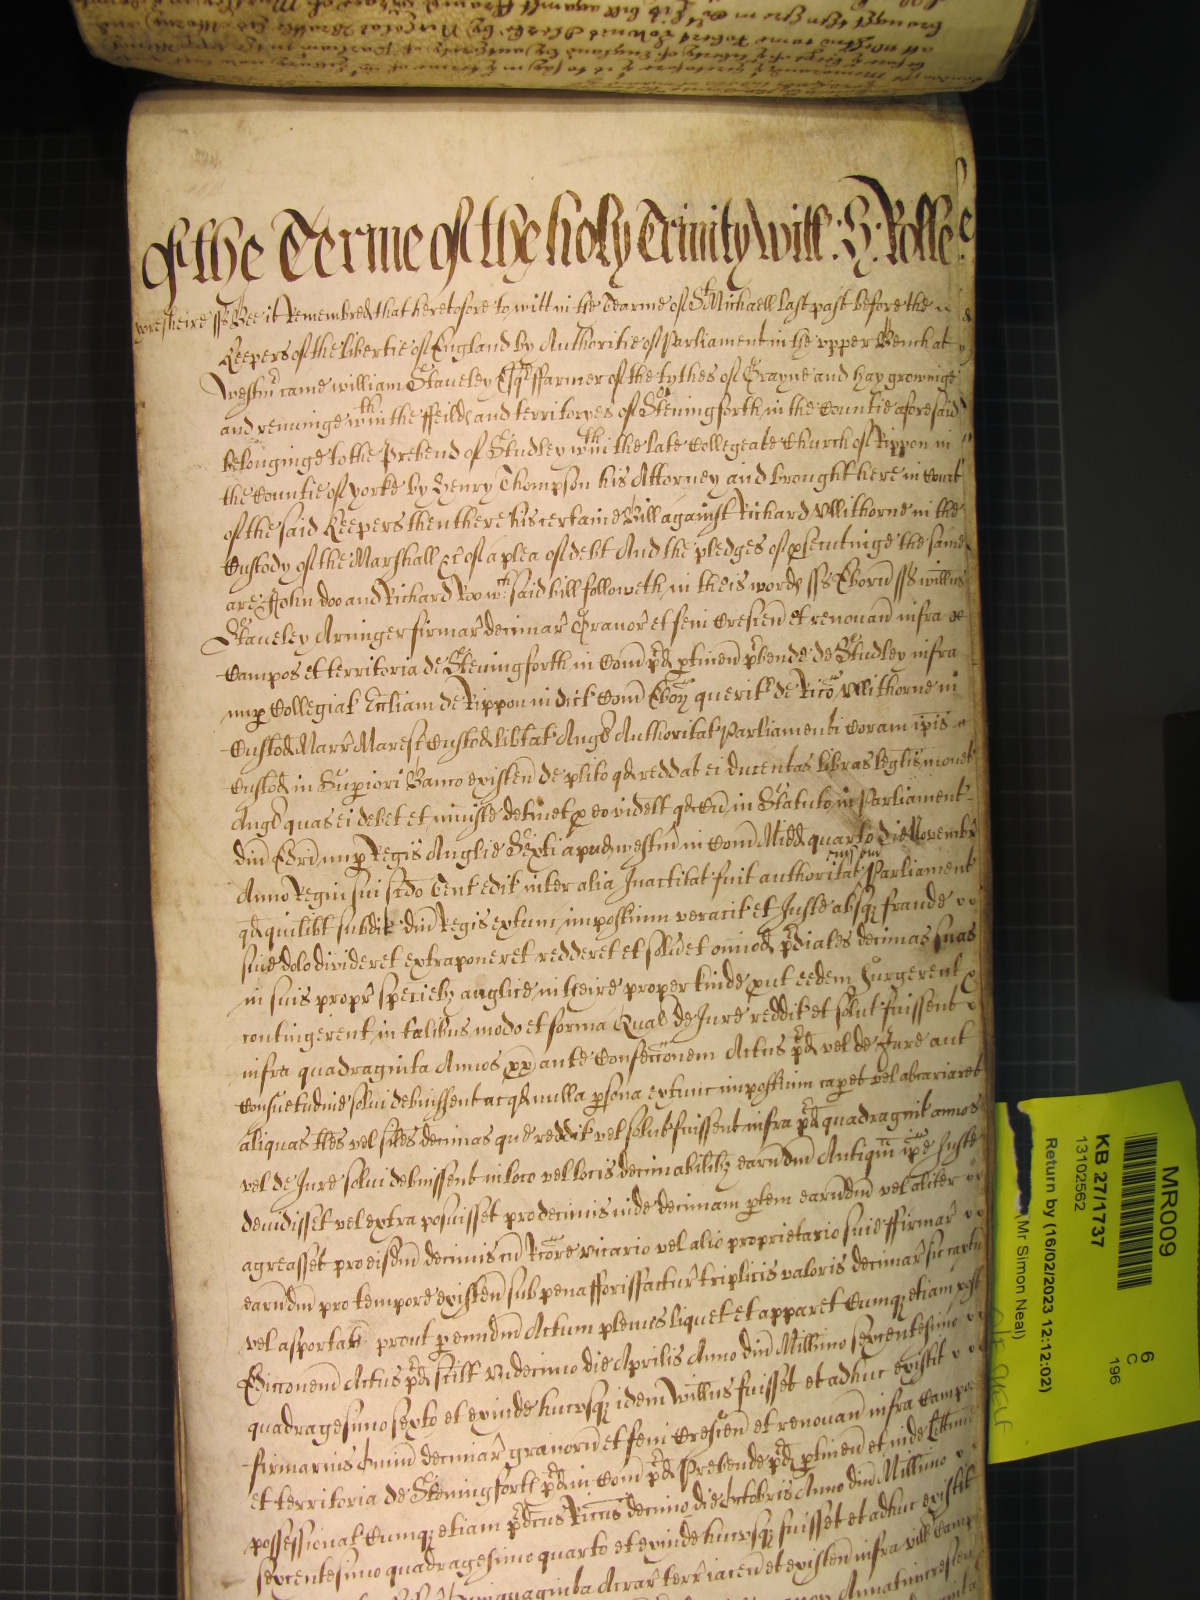 of the Terme of the holy Trinity Will: H: Rolle
Bee it Remembred that heretofore to witt in the Tearme of St Michaell last past before the
Keepers of the libertie of England by Authoritie of Parliament in the upper Bench at
Westm came william Staveley Esqr ffarmer of the tythes of Grayne and hay growinge
and renuinge wthin the ffeild and territoryes of Steningforth in the Countie aforesaid
belonginge to the Prebend of Studley wthin the late Collegeate Church of Rippon in
the Countie of yorke by Henry Thompson his Attorney and brought here in Court
of the said Keepers then there his certaine Bill against Richard Ullithorne in the
Custody of the Marshall &c of a plea of debt And the pledges of psecutinge the same
are John doo and Richard Roo wch said bill followeth in theis word ss Eborn ss Willus
Staveley Arminger firmar decimar Granor et feni Crescen et renovan infra
Campos et territoria de Steningforth in Com pd ptinen pbende de Studley infra
nup Collegiat Ecctiam de Rippon in dict Com Ebor querit de Rico Ullithorne in
Custod Marr Maresc Custod libtat Angt Authoritat Parliamenti Coram ipis
Custod in Superiori Banco existen de plito qd reddat ei ducentas libras legtis monet
Angt quas ei debet et iniuste detinet p eo vidett qd cu in Statuto in Parliament
dni Edri nup Regis Anglie Sexti apud westm in Com Midd quarto die Novembr
Anno Regni sui scdo tent edit inter alia Inactitat fuit authoritat eiusdem Parliament
qd quilibt subdit dni Regis extunc imposterum veracit et Juste absq fraude
sive dolo divideret extraponeret redderet et solvet omiod pdiales decimas suas
in suis propr specieb anglice in theire proper kinde put eedem Surgerent
contingerent in talibus modo et forma Qual de Jure reddit et solut fuissent
infra quadraginta Annos px ante Confeccionem Actus pd vel de Jure aut
Consuetudine solvi debuissent ac qd nulla psona extunc imposterum capet vel abcariaret
aliquas tles vel siles decimas que reddit vel solut fuissent infra pd quadragint annos
vel de Jure solvi debuissent in loco vel locis decimabilib earundm Antiqm ipe Juste
devidisset vel extra posuisset pro decimis inde decimam ptem earundm vel aliter
agreasset pro eisdm decimis cu Rcore vicario vel alio proprietario sive ffirmar
earundm pro tempore existen sub pena fforisfactur triplicis valoris decimar sic capt
vel asportat prout p eundm Actum plenius liquet et apparet Cumq etiam post
Ediconem Actus pd scilt undecimo die Aprilis Anno dni Millimo sexcentesimo
quadragesimo sexto et exinde hucusq idem Willus fuisset et adhuc existit
firmarius omnium decimar granoru et feni Crescen et renovan infra Campos
et territoria de Steningforth pd in Com pd Prebende pd ptinen et inde
possessionat Cumq etiam pdcus Ricus decimo die Octobris Anno dni Millimo
sexcentesimo quadragesimo quarto et exinde hucusq fuisset et adhuc existit
quinquaginta Acrar terr iacen et existen infra vill Camp
MR009
KB 27/1737
13102562
Return by (16/02/2023 12:12:02)
Mr Simon Neal)
6
C
196